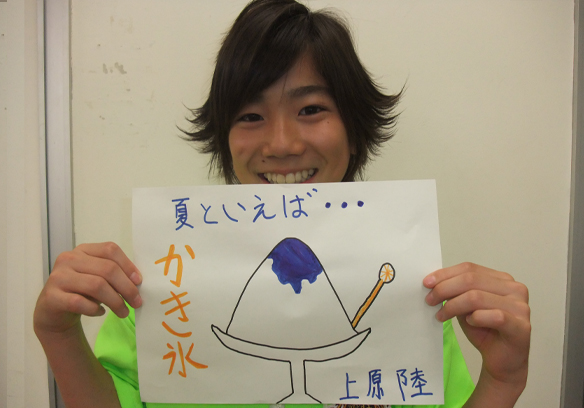 夏といえば・・・
かき氷
上原 陸